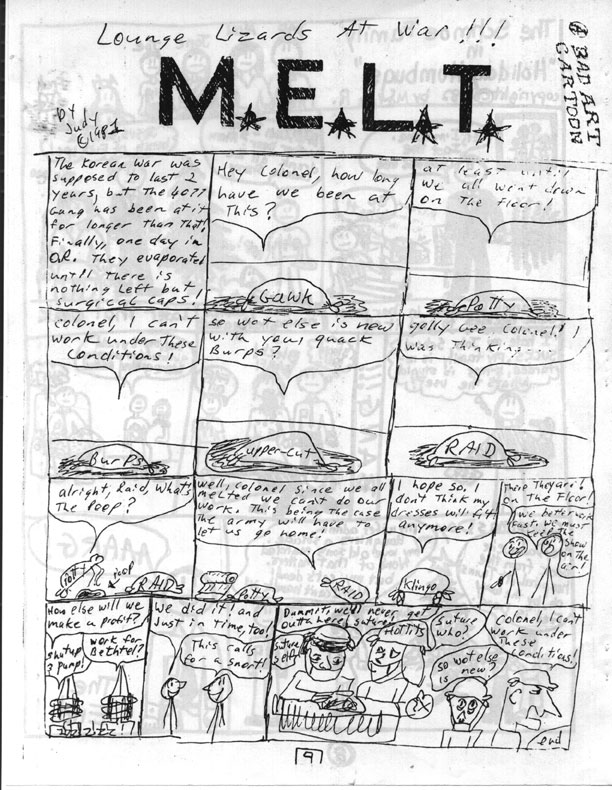 Lounge Lizards At War!!!
M.E.L.T.
A BAD ART
CARTOON
By
Judy
The Korean War was
supposed to last 2
years, but the 4077
Gang has been at it
for longer than that!
Finally, one day in
O.R. They evaporated
until There is
nothing left but
surgical caps!
Hey Colonel, how long
have we been at
This?
Gawk
at least until
we all went down
on The floor!
Potty
colonel, I can't
work under These
Conditions!
Burps
so wot else is new
with you, quack
Burps?
upper-cut
golly gee Colonel! I
was Thinking...
RAID
alright, Raid, what's
The Poop?
poop
RAID
well, colonel since we all
melted we can't do our
work. This being the case
the army will have to
let us go home!
Potty
RAID
I hope so. I
don't Think my
dresses will fit
anymore!
Klingo
There They are!
on The Floor!
We better work
fast. we must
keep the
show
on the
air!
How else will we
make a profit?
shutup
& pump!
work for
Bethtel?
We did it! and
Just in time, too!
This calls
for a snort!
Dammit, we'll never get
outta here! suture!
suture
self!
Hot lits
suture
who?
so wot else
is new
Colonel, I can't
work under
These
Conditions!
end
9